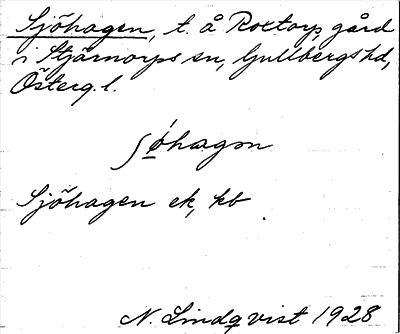 Sjöhagen, t. å Roxtorps gård
i Stjärnorps sn, Gullbergs hd,
Österg. l.
ʃø̀hagən
Sjöhagen ek, kb
N. Lindqvist 1928